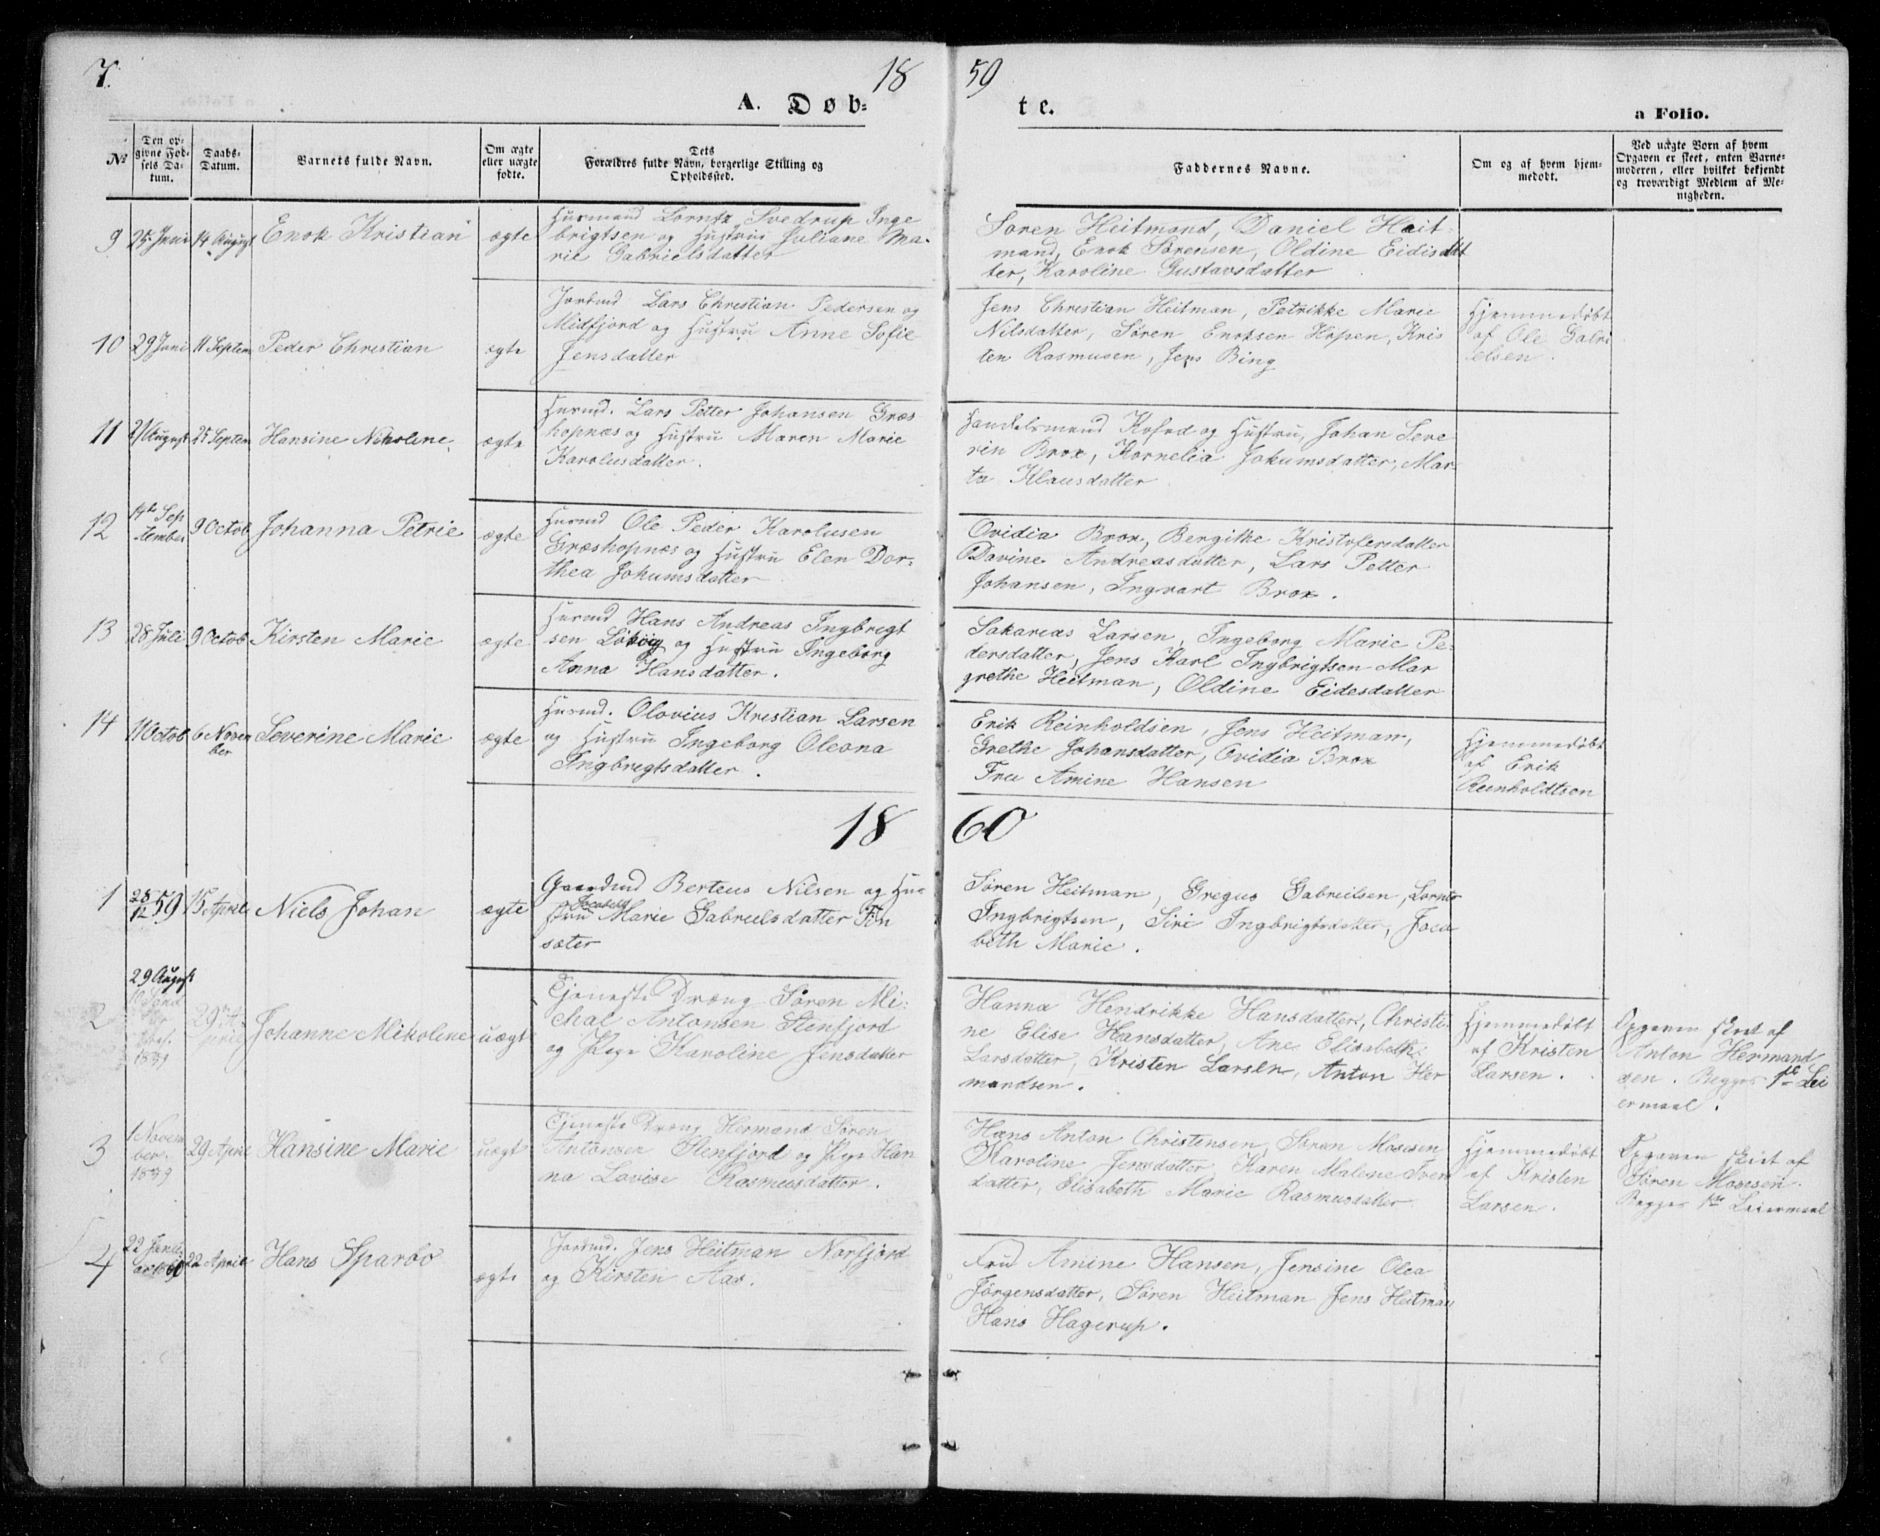 7.
18 59
A. Døb- te.
a Folio.
No
Den opgivne Fødsels Datum.
Daabs-Datum.
Barnets fulde Navn.
Om ægte eller uægte fødte.
Dets Forældres fulde Navn, borgerlige Stilling og Opholdssted.
Faddernes Navne.
Om og af hvem hjemmedøbt.
Ved uægte Børn af hvem Opgaven er skeet, enten Barnemoderen, eller hvilket bekjendt og troværdigt Medlem af Menigheden.
9 25 Juni 14 August Enok Kristian ægte
Husmand Lorntz Svedrup Inge
brigtsen og Hustru Juliane Ma-
rie Gabrielsdatter
Søren Heitmand, Daniel Heit-
mand, Enok Sørensen, Oldine Eidisdat
ter, Karoline Gustavsdatter
10 29 Juni 11 Septem Peder Christian ægte
Jorbmd Lars Christian Pedersen og
Midfjord og Hustru Anne Sofie
Jensdatter
Jens Christian Heitman, Petrikke Marie
Nilsdatter, Søren Enoksen Hopen, Kris
ten Rasmusen, Jens Bing
Hjemmedøbt
af Ole Gabri
elsen.
11 21 August 25 Septem Hansine Nikoline ægte
Husmd. Lars Petter Johansen Græs
hopnæs og Hustru Maren Marie
Karolusdatter.
Handelsmand Kofod og Hustru, Johan Seve
rin Brox, Kornelia Jokumsdatter, Mar-
ta Klausdatter
12 14de Sep
tember 9 Octob Johanna Petrie ægte
Husmd Ole Peder Karolusen
Græshopnæs og Hustru Elen Dor-
thea Jokumsdatter
Ovidia Brox, Bergithe Kristofersdatter
Davine Andreasdatter, Lars Petter
Johansen, Ingvart Brox.
13 28 Juli 9 Octob Kirsten Marie ægte
Husmd Hans Andreas Ingbrigt
sen og Hustru Ingeborg
Anna Hansdatter.
Sakarias Larsen, Ingeborg Marie Pe-
dersdatter, Jens Karl Ingbrigtsen Mar
grethe Heitman, Oldine Eidesdatter
14 11 Octob 6 Novem
ber Severine Marie ægte
Husmd. Olovius Kristian Larsen
og Hustru Ingeborg Oleona
Ingbregtsdatter.
Erik Reinholdsen, Jens Heitman,
Grethe Johansdatter, Ovidia Brox
Fru Amine Hansen
Hjemmedøbt
af Erik
Reinholdtsen
18 60
1 28/12 59 15 April Niels Johan ægte
Gaardmd Berteus Nilsen og Hus
tru Jacobeth Marie Gabrielsdatter Fin
sæter
Søren Heitman, Gregus Gabrielsen, Lornts
Ingbrigtsen, Siri Ingbrigtsdatter, Jaco
beth Marie.
2 29 August
1859 29 April Johanne Mikoline uægt
Tjeneste Dræng Søren Mi-
chal Antonsen Stenfjord
og Pige Karoline Jensdatter
Hanna Hendrikke Hansdatter, Christi-
ne Elise Hansdatter, Ane Elisabeth
Larsdatter, Kristen Larsen, Anton Her
mandsen.
Hjemmedøbt
af Kristen
Larsen.
Opgaven skeet af
Anton Hermand
sen. Begges 1ste Lei
ermaal.
3 1 Novem
ber
1859 29 April Hansine Marie uægt
Tjeneste Dræng Hermand Søren
Antonsen Stenfjord og Pige Han
na Lovise Rasmusdatter.
Hans Anton Christensen, Søren Mosesen
Karoline Jensdatter, Karen Malene Iven
datter, Elisabeth Marie Rasmusdatter
Hjemmedøbt
af Kristen
Larsen.
Opgaven skeet af
Søren Mosesen.
Begges 1ste Leiermaal
4 22 Janu-
ar 60 22 April Hans Sparbo ægte
Jordmd. Jens Heitman Norfjord
og Kirsten Aas.
Frue Amine Hansen, Jensine Olea
Jörgensdatter, Søren Heitman Jens Heitman
Hans Hagerup.